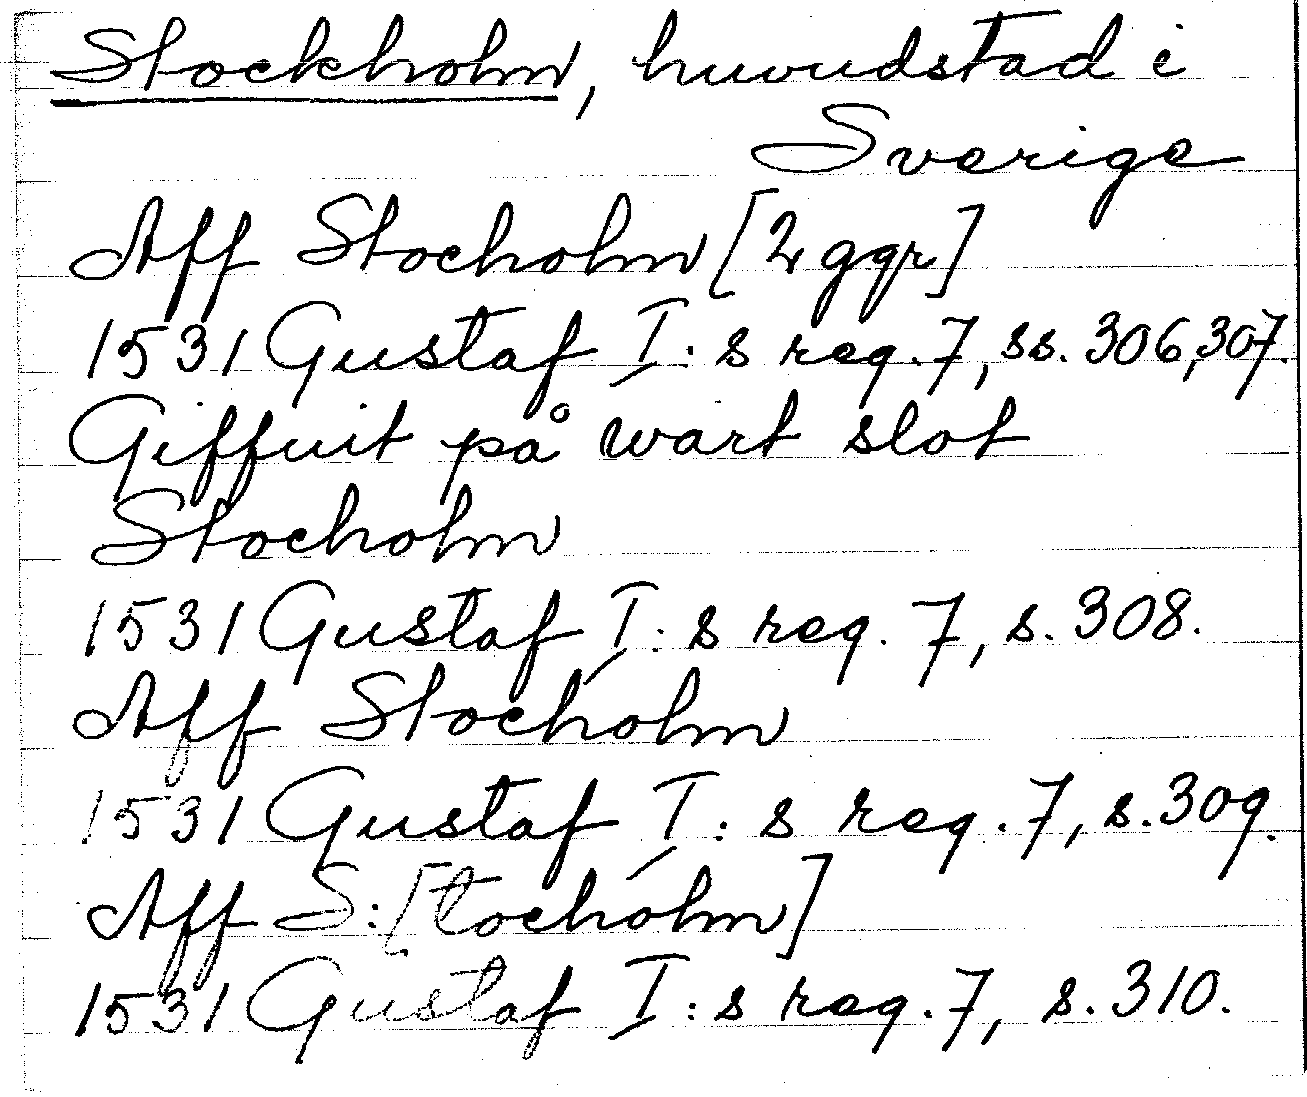 Stockholm, huvudstad i
Sverige
Aff Stocholm [2 ggr]
1531 Gustaf I:s reg. 7, ss. 306, 307.
Giffuit på wart slot
Stocholm
1531 Gustaf I:s reg. 7, s. 308.
Aff Stocholm
1531 Gustaf I:s reg. 7, s. 309.
Aff S:[tocholm]
1531 Gustaf I:s reg. 7, s. 310.